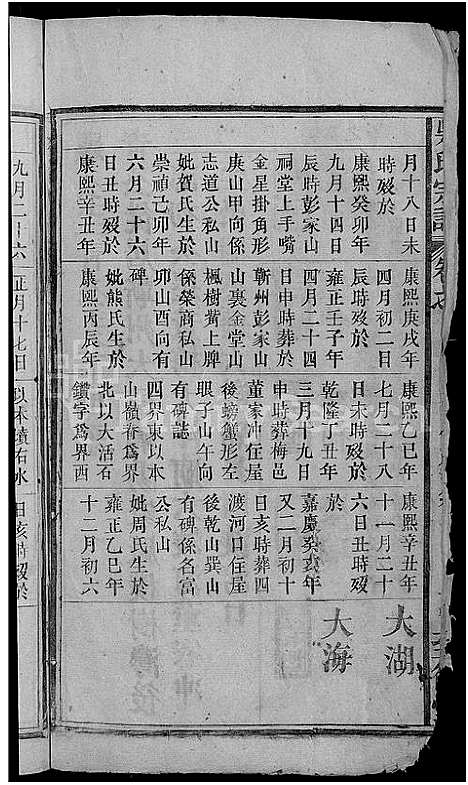 氏宗譜
月十八日未
時歿於
康熙癸卯年
九月十四日
辰時彭家山
祠堂上手嘴
金星掛角形
庚山甲向係
志道公私山
妣賀氏生於
崇禎己卯年
六月二十六
日丑時歿於
康熙辛丑年
康熙庚戌年
四月初二日
辰時歿於
雍正壬子年
四月二十四
日申時葬於
蘄州彭家山
山裏金堂山
楓樹觜上牌
係榮商私山
卯山酉向有
碑
妣熊氏生於
康熙丙辰年
康熙乙巳年
七月二十八
日未時歿於
乾隆丁丑年
三月十九日
申時葬梅邑
董家冲住屋
後螃蟹形左
眼子山午向
有碑誌
四界東以本
山嶺脊為界
北以大活石
鑽字為界西
康熙辛丑年
十一月二十
六日丑時歿
於
嘉慶癸亥年
又二月初十
日亥時葬四
渡河口住屋
後乾山巽山
有碑係名富
公私山
妣周氏生於
雍正乙巳年
十二月初六
大湖
大海
九月二十六
正月十七日
以本墳右水
日亥時歿於